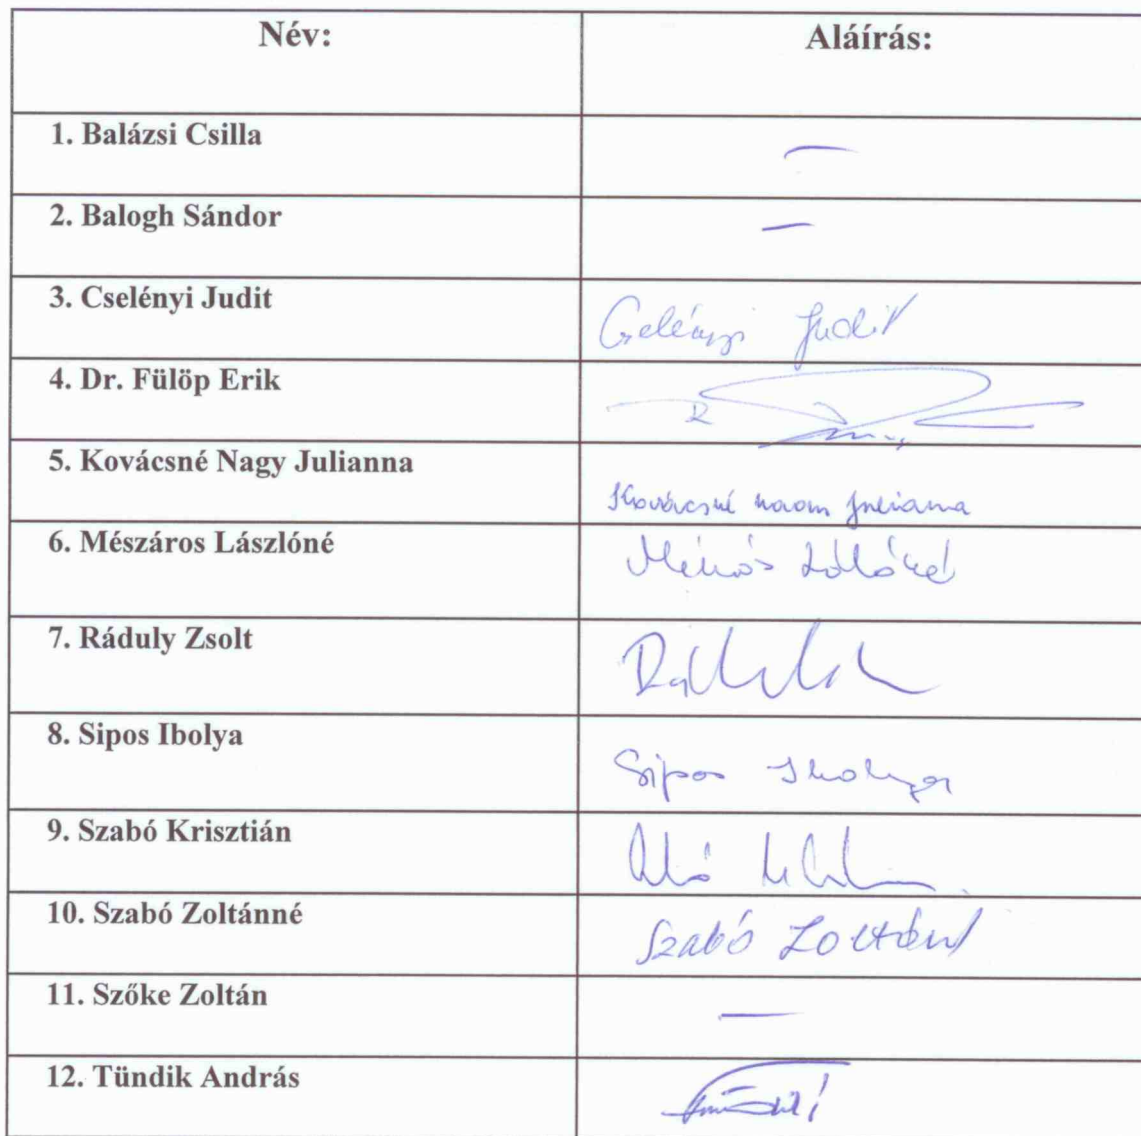 Név:
Aláírás:
1. Balázsi Csilla
—
2. Balogh Sándor
—
3. Cselényi Judit
Cselényi Judit
4. Dr. Fülöp Erik
5. Kovácsné Nagy Julianna
Kovácsné
6. Mészáros Lászlóné
7. Ráduly Zsolt
8. Sipos Ibolya
Sipos Ibolya
9. Szabó Krisztián
10. Szabó Zoltánné
Szabó Zoltánné
11. Szőke Zoltán
—
12. Tündik András